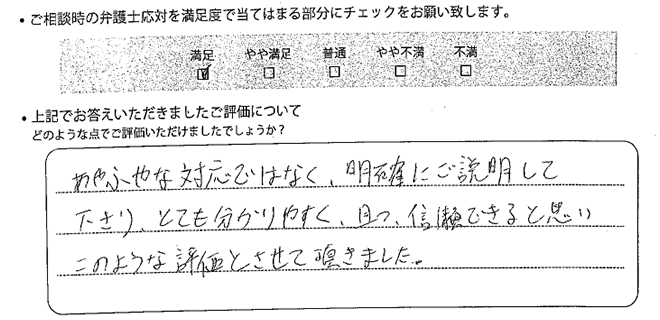 ・ご相談時の弁護士応対を満足度で当てはまる部分にチェックをお願い致します。
満足 やや満足 普通 やや不満 不満
☑ □ □ □ □
・上記でお答えいただきましたご評価について
どのような点でご評価いただけましたでしょうか？
あやふやな対応ではなく、明確にご説明して
下さり、とても分かりやすく、且つ、信頼できると思い
このような評価とさせて頂きました。